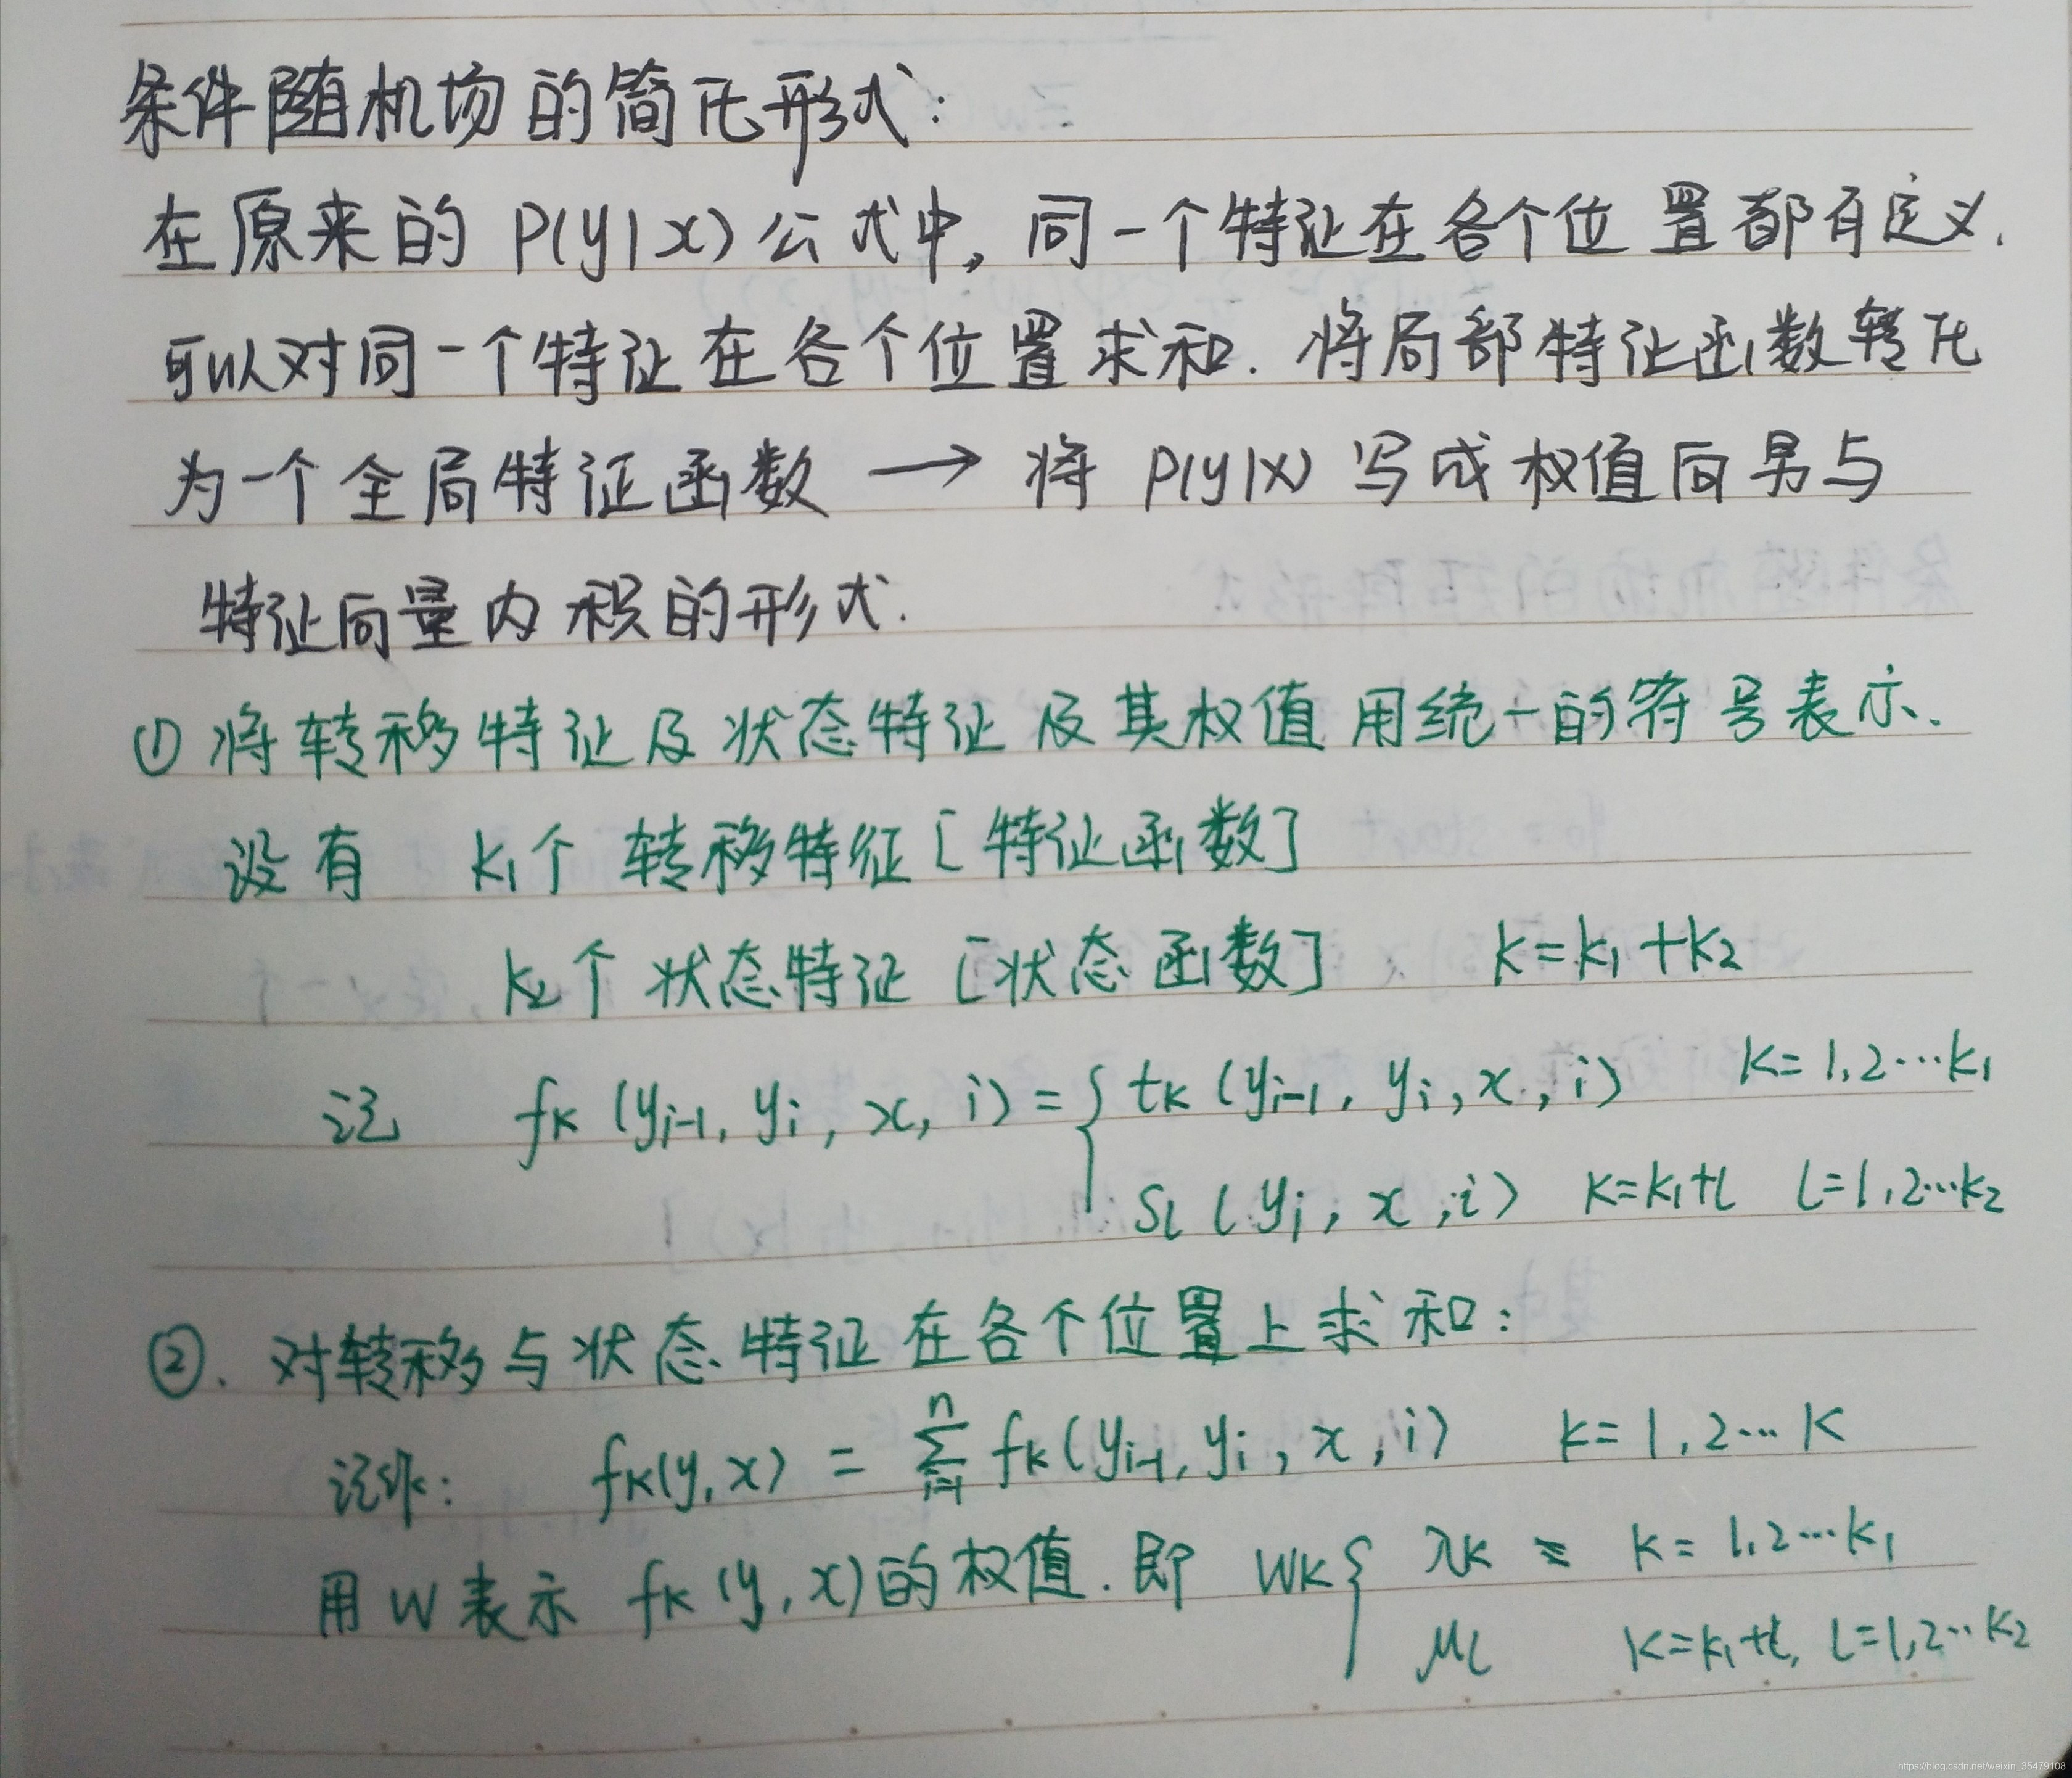 条件随机场的简化形式:
在原来的 P(y|x) 公式中, 同一个特征在各个位置都有定义.
可以对同一个特征在各个位置求和. 将局部特征函数转化
为一个全局特征函数 → 将 P(y|x) 写成权值向量与
特征向量内积的形式.
① 将转移特征及状态特征及其权值用统一的符号表示.
设有 k₁个 转移特征 [特征函数]
k₂个 状态特征 [状态函数] k=k₁+k₂
记 fk (yi-1, yi, x, i) = { tk (yi-1, yi, x, i) k=1,2…k₁
sl (yi, x, i) k=k₁+l l=1,2…k₂
②. 对转移与状态特征在各个位置上求和:
记作: fk(y,x) = Σ(i=1 → n) fk(yi-1, yi, x, i) k=1,2…K
用 w 表示 fk(y,x)的权值. 即 wk { λk = k=1,2…k₁
μl k=k₁+l, l=1,2…k₂
https://blog.csdn.net/weixin_35479108